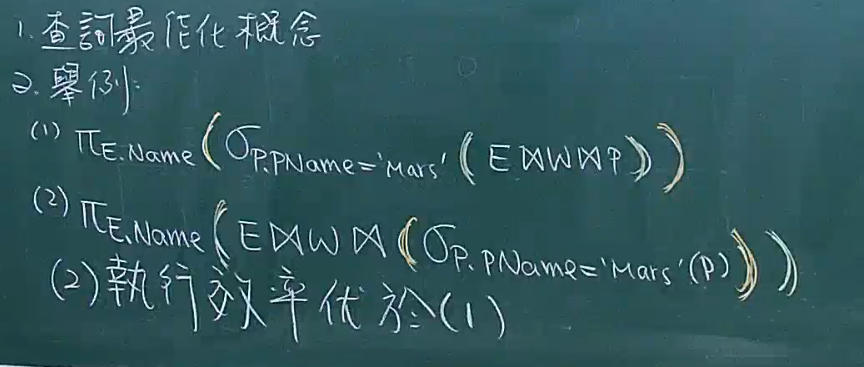 1. 查詢最佳化概念
2. 舉例:
(1) π_E.Name(σ_P.PName='Mars'(E⋈W⋈P))
(2) π_E.Name(E⋈W⋈(σ_P.PName='Mars'(P)))
(2)執行效率优於(1)